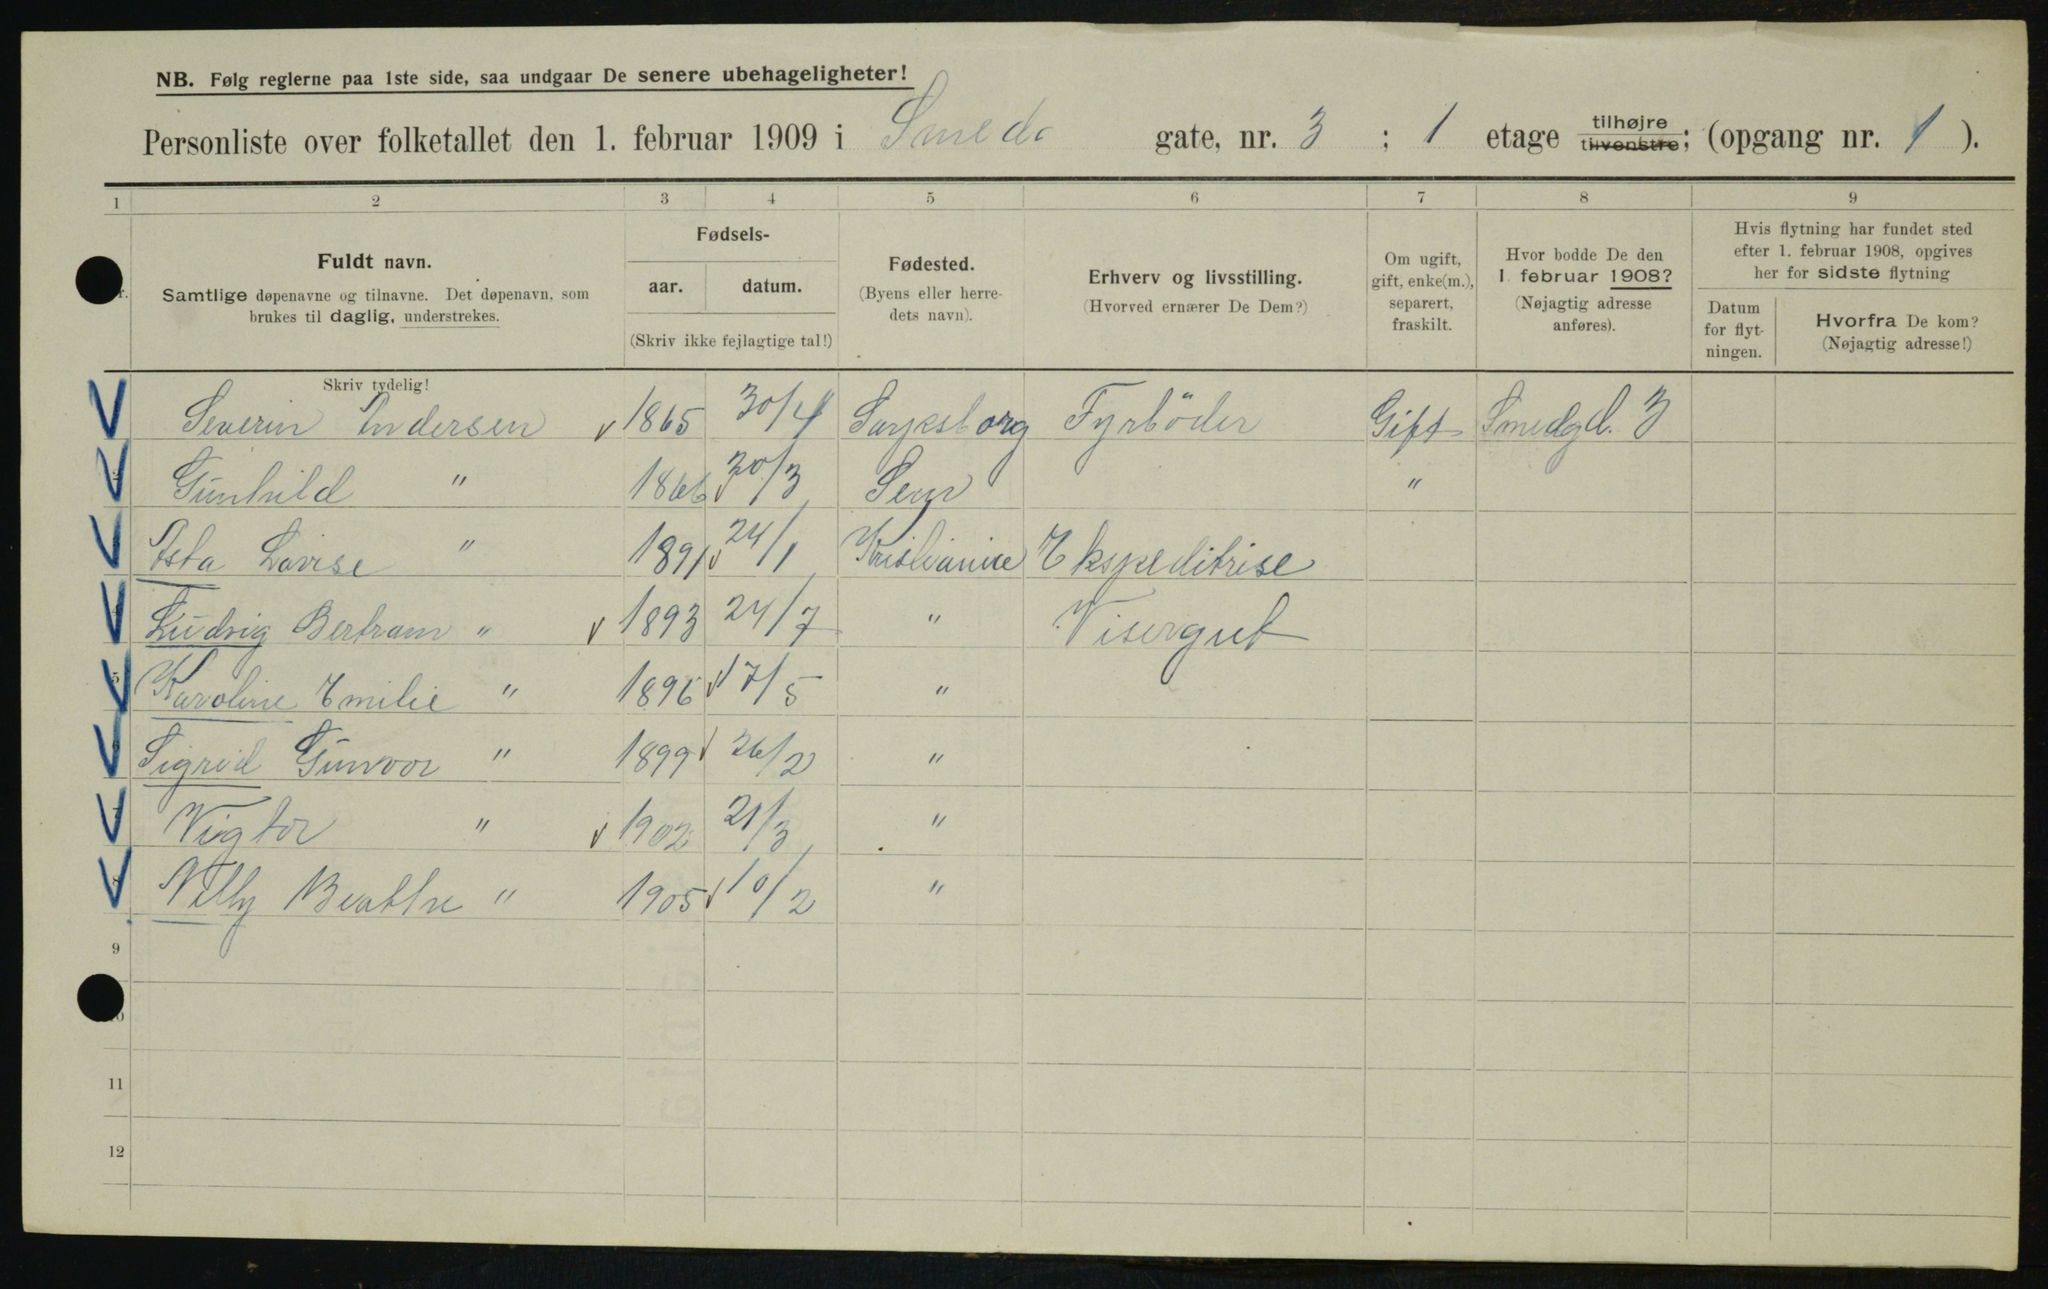 NB. Følg reglerne paa 1ste side, saa undgaar De senere ubehageligheter!
Personliste over folketallet den 1. februar 1909 i Smeds gate, nr. 3 ; 1 etage tilhøjre tilvenstre; (opgang nr. 1 ).
1 2 3 4 5 6 7 8 9
Fuldt navn.
Samtlige døpenavne og tilnavne. Det døpenavn, som
brukes til daglig, understrekes.
Skriv tydelig!
Fødsels-
aar. datum.
(Skriv ikke fejlagtige tal!)
Fødested.
(Byens eller herre-
dets navn).
Erhverv og livsstilling.
(Hvorved ernærer De Dem?)
Om ugift,
gift, enke(m.),
separert,
fraskilt.
Hvor bodde De den
1. februar 1908?
(Nøjagtig adresse
anføres).
Hvis flytning har fundet sted
efter 1. februar 1908, opgives
her for sidste flytning
Datum
for flyt-
ningen.
Hvorfra De kom?
(Nøjagtig adresse!)
Severin Andersen 1865 30/4 Sarpsborg Fyrböder Gift Smedgd. 3
2 Gunhild " 1866 30/3 Sem "
Asta Lovise " 1891 24/1 Kristiania Ekspeditrise
4 Ludvig Bertram " 1893 24/7 " Visergut
5 Karoline Emilie " 1896 17/5 "
6 Sigrid Gunvor " 1899 26/2 "
7 Vigtor " 1902 21/3 "
8 Nelly Beathe " 1905 10/2 "
9
10
11
12